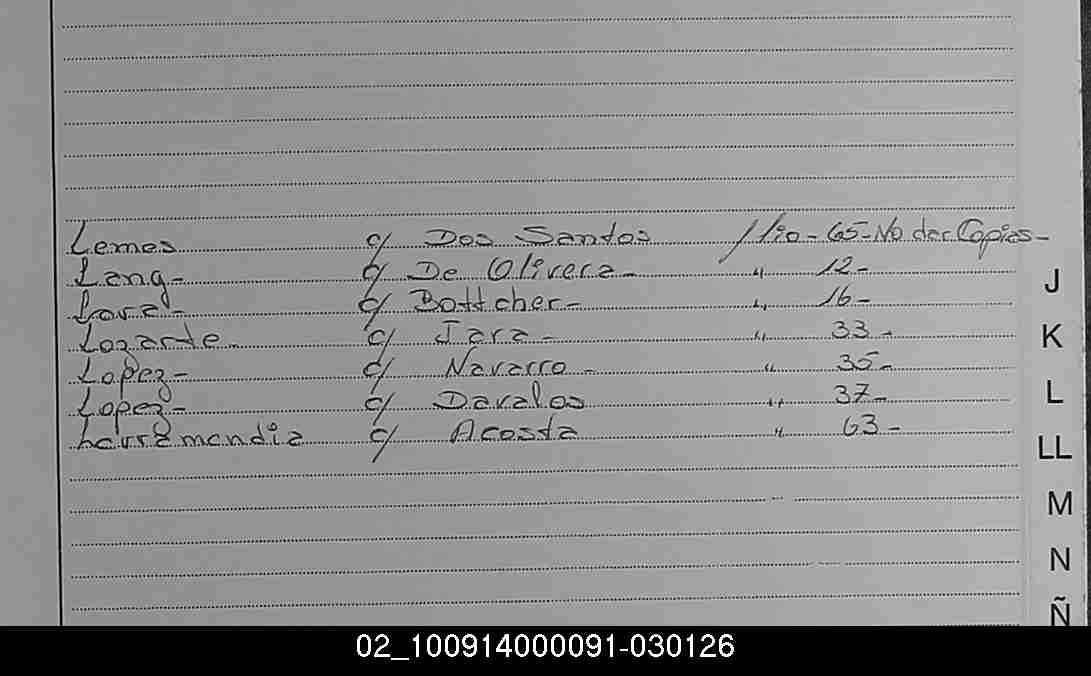 Lemes c/ Dos Santos Flio - 65 - No dar Copias -
Lang - c/ De Olivera - " 12 -
Lora - c/ Bottcher - " 16 -
Lozarte - c/ Jara - " 33 -
Lopez - c/ Navarro - " 35 -
Lopez - c/ Davalos " 37 -
Larramendia c/ Acosta " 63 -
J
K
L
LL
M
N
Ñ
02_100914000091-030126